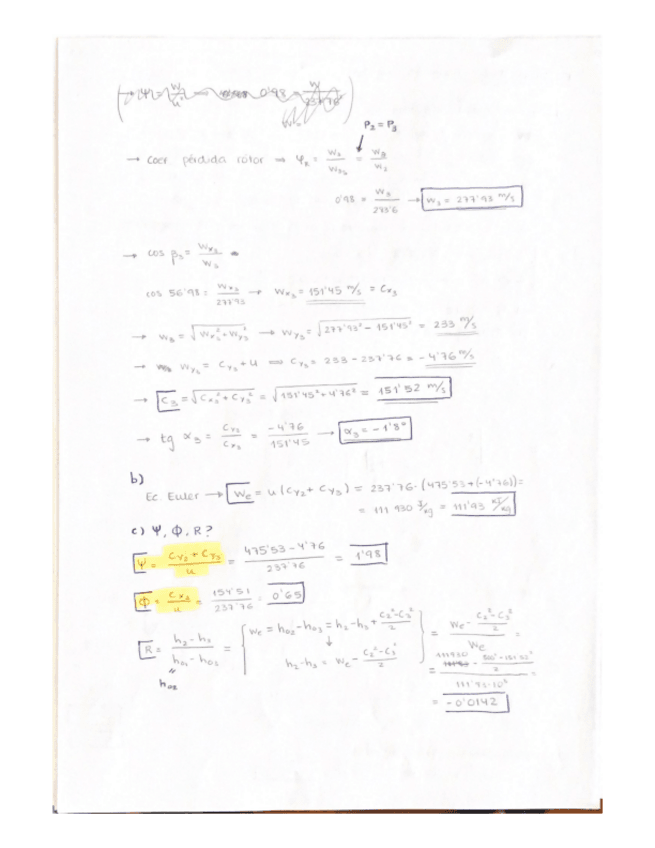 P₂ = P₃
→ Coer pérdida rotor ⇒ φ_R = W₃/W₃ₛ = W₃/W₂
0'98 = W₃/273'6 → W₃ = 277'93 m/s
→ cos β₃ = Wx₃/W₃
cos 56'98 = Wx₃/277'93 → Wx₃ = 151'45 m/s = Cx₃
→ W₃ = √(Wx₃² + Wy₃²) → Wy₃ = √(277'93² - 151'45²) = 233 m/s
→ Wy₃ = Cy₃ + U ⇒ Cy₃ = 233 - 237'76 = -4'76 m/s
→ C₃ = √(Cx₃² + Cy₃²) = √(151'45² + 4'76²) = 151'52 m/s
→ tg α₃ = Cy₃/Cx₃ = -4'76/151'45 → α₃ = -1'8°
b)
Ec. Euler → We = u (Cy₂ + Cy₃) = 237'76 · (475'53 + (-4'76)) =
= 111 930 J/kg = 111'93 KJ/kg
c) Ψ, Φ, R?
Ψ = (Cy₂ + Cy₃)/u = (475'53 - 4'76)/237'76 = 1'98
Φ = Cx₃/u = 154'51/237'76 = 0'65
R = (h₂ - h₃)/(h₀₁ - h₀₃) = { We = h₀₂ - h₀₃ = h₂ - h₃ + (C₂² - C₃²)/2 } = (We - (C₂² - C₃²)/2)/We =
↓
h₂ - h₃ = We - (C₂² - C₃²)/2
"
h₀₂
111930
111'93·10³
= -0'0142